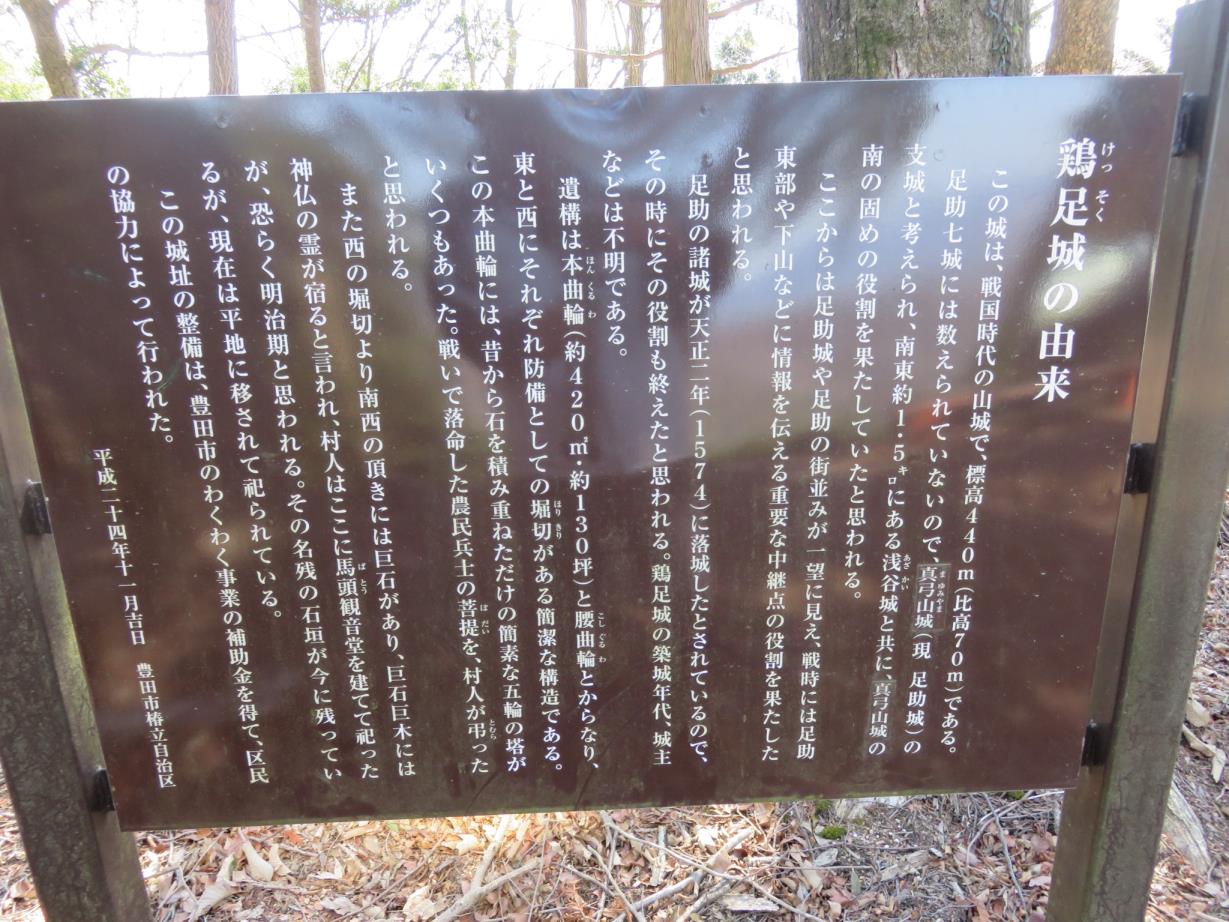 鶏足城の由来
けっ そく
この城は、戦国時代の山城で、標高440m(比高70m)である。
足助七城には数えられていないので、真弓山城(現 足助城)の
まゆみやま
支城と考えられ、南東約1・5㌔にある浅谷城と共に、真弓山城の
あざ かい
南の固めの役割を果たしていたと思われる。
ここからは足助城や足助の街並みが一望に見え、戦時には足助
東部や下山などに情報を伝える重要な中継点の役割を果たした
と思われる。
足助の諸城が天正二年(1574)に落城したとされているので、
その時にその役割も終えたと思われる。鶏足城の築城年代、城主
などは不明である。
遺構は本曲輪(約420㎡・約130坪)と腰曲輪とからなり、
ほん くる わ こし ぐる わ
東と西にそれぞれ防備としての堀切がある簡潔な構造である。
ほり きり
この本曲輪には、昔から石を積み重ねただけの簡素な五輪の塔が
いくつもあった。戦いで落命した農民兵士の菩提を、村人が弔った
ぼ だい とむら
と思われる。
また西の堀切より南西の頂きには巨石があり、巨石巨木には
神仏の霊が宿ると言われ、村人はここに馬頭観音堂を建てて祀った
ば とう
が、恐らく明治期と思われる。その名残の石垣が今に残ってい
るが、現在は平地に移されて祀られている。
この城址の整備は、豊田市のわくわく事業の補助金を得て、区民
の協力によって行われた。
平成二十四年十一月吉日 豊田市椿立自治区